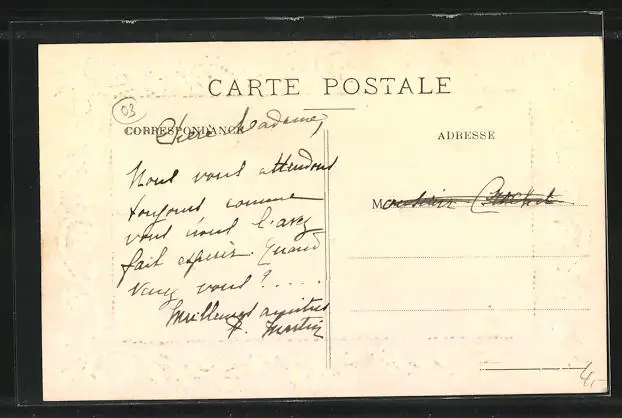 03
CARTE POSTALE
CORRESPONDANCE
Chère Madame,
ADRESSE
Nous vous attendons
toujours comme
vous nous l'avez
fait espérer. Quand
venez vous ? . . . .
Meilleures amitiés
Martin
M
4,-